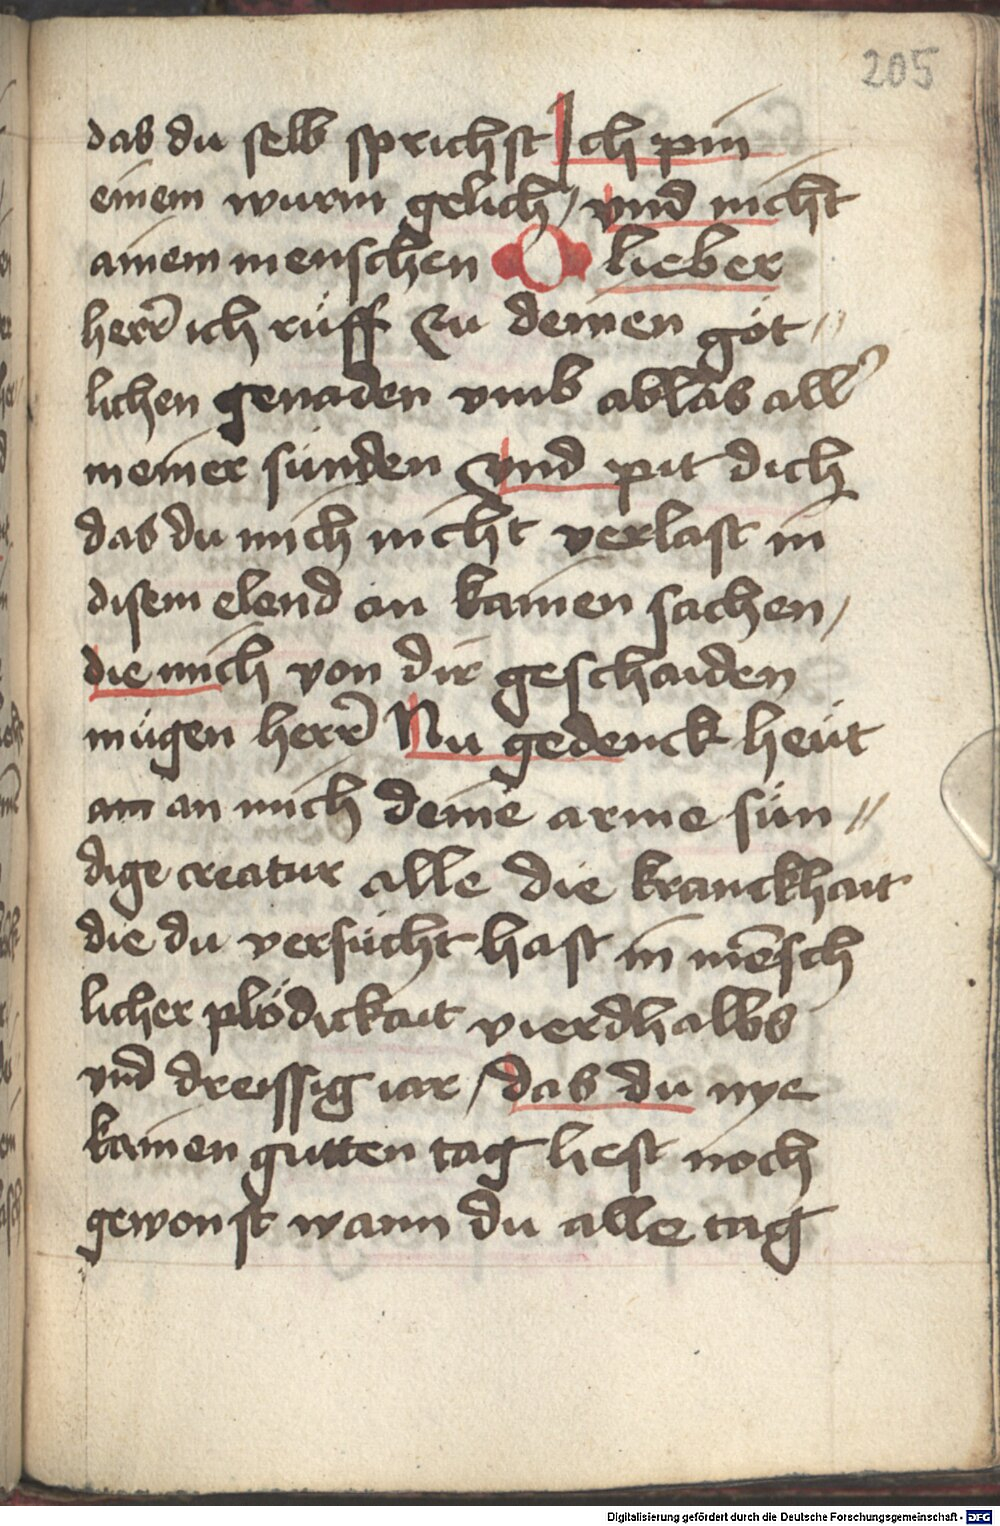 205
das du selb sprichst Ich pin
einem wurm gelich / vnd nicht
ainem menschen O lieber
herr̄ ich rüff zu deinen göt〃
lichen genaden vmb ablas all'
meiner sünden vnd pit dich
das du mich nicht verlast in
disem elend an kainen sachen /
die mich von dir geschaiden
mügen herr̄ Nu gedenck heüt
an mich deine arme sün〃
dige creatur alle die kranckhait
die du versücht hast in mēsch
licher plödickait vierdhalbs
vnd dreissig iar / das du nye
kainen gutten tag hest noch
gewonst wann du alle tag
Digitalisierung gefördert durch die Deutsche Forschungsgemeinschaft - DFG